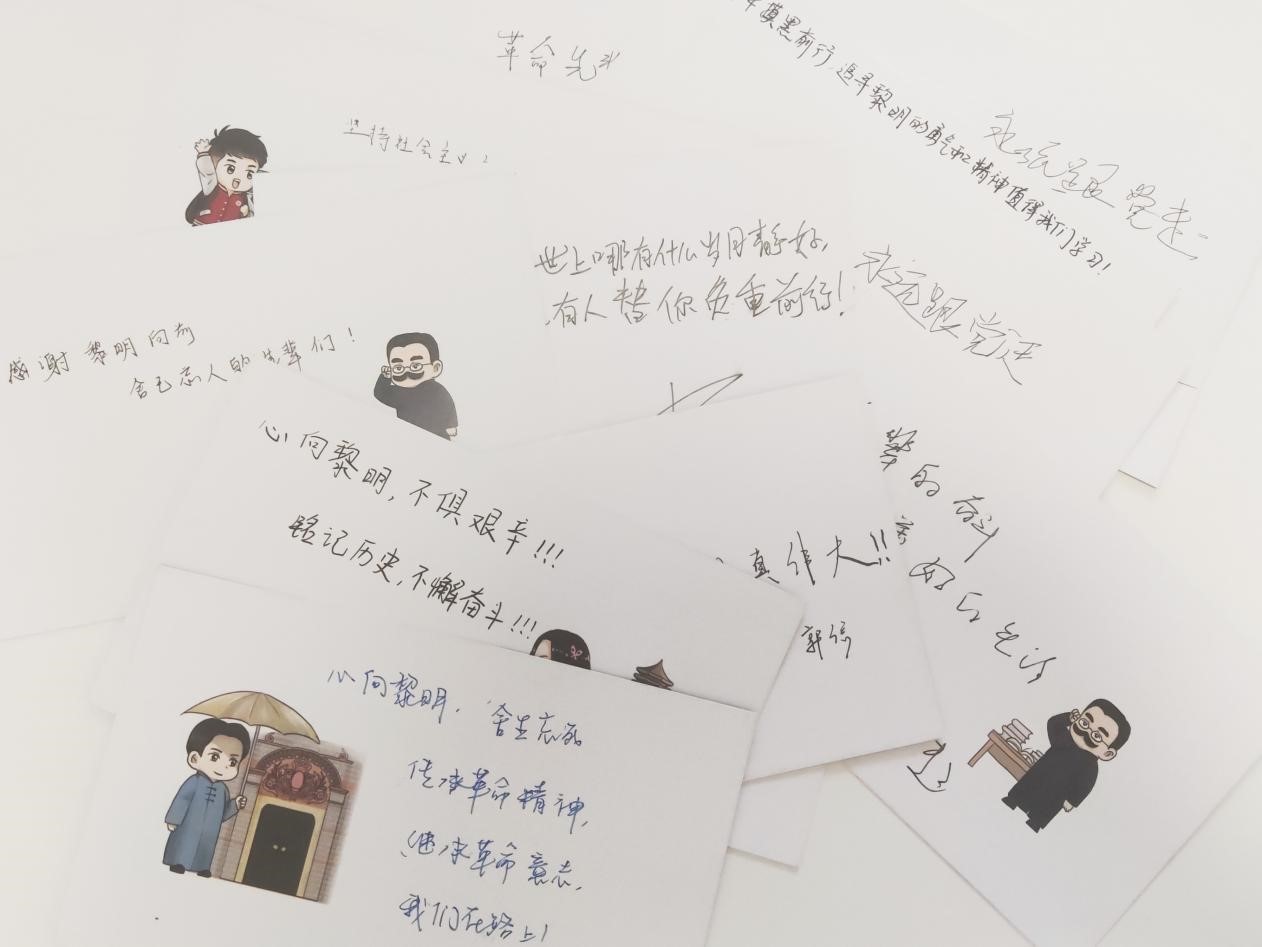 革命先
坚持社会主义!
摸黑前行,追寻黎明的勇气和精神值得我们学习!
永远跟党走
世上哪有什么岁月静好,
有人替你负重前行!
永远跟党走
感谢黎明向前
舍己忘人的先辈们!
心向黎明,不俱艰辛!!!
铭记历史,不懈奋斗!!!
真伟大!!
辈的奋斗
心向黎明,舍生忘死
传承革命精神,
继承革命意志,
我们在路上!